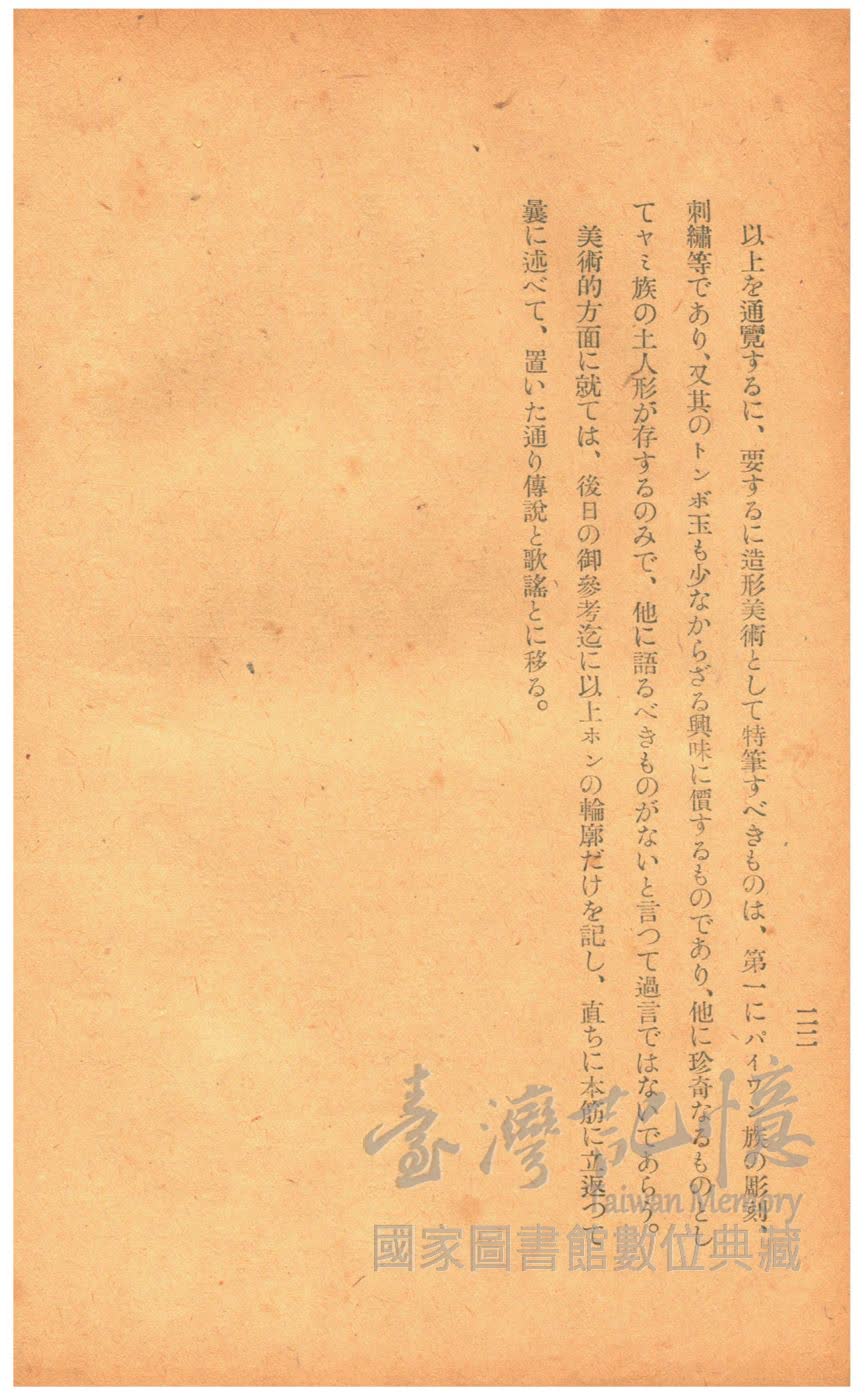 二二
以上を通覽するに、要するに造形美術として特筆すべきものは、第一にパイワン族の彫刻、
刺繡等であり、又其のトンボ玉も少なからざる興味に價するものであり、他に珍奇なるものとし
てヤミ族の土人形が存するのみで、他に語るべきものがないと言つて過言ではないであらう。
美術的方面に就ては、後日の御參考迄に以上ホンの輪廓だけを記し、直ちに本筋に立返つて
曩に述べて、置いた通り傳說と歌謠とに移る。
臺灣記憶
Taiwan Memory
國家圖書館數位典藏